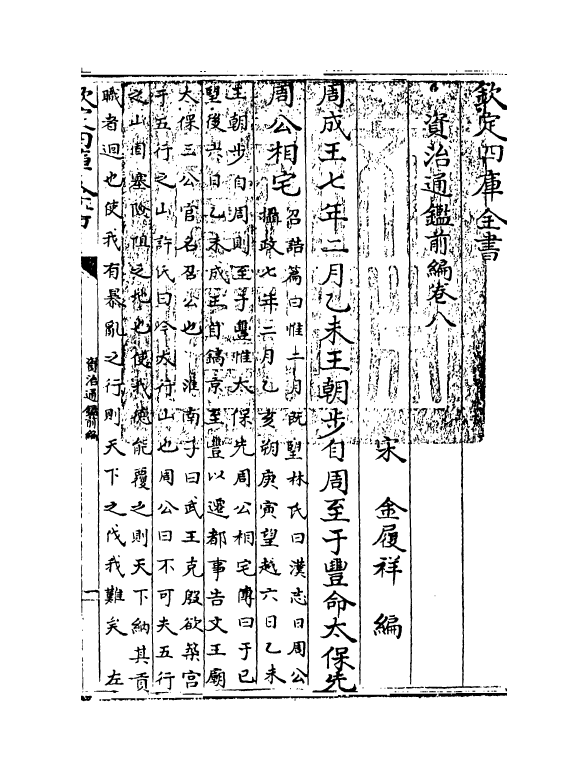 欽定四庫全書
資治通鑑前編卷八
宋 金履祥 編
周成王七年二月乙未王朝步自周至于豐命太保先
周公相宅
召誥篇曰惟二月既望林氏曰漢志曰周公
攝政七年二月乙亥朔庚寅望越六日乙未
王朝步自周則至于豐惟太保先周公相宅傳曰于已
望後六日乙未成王自鎬京至豐以遷都事告文王廟
太保三公官名召公也 淮南子曰武王克殷欲築宮
于五行之山 許氏曰今太行山也周公曰不可夫五行
之山固塞險阻之地也使我德能覆之則天下納其貢
職者迴也使我有暴亂之行則天下之伐我難矣 左
資治通鑑前編
一